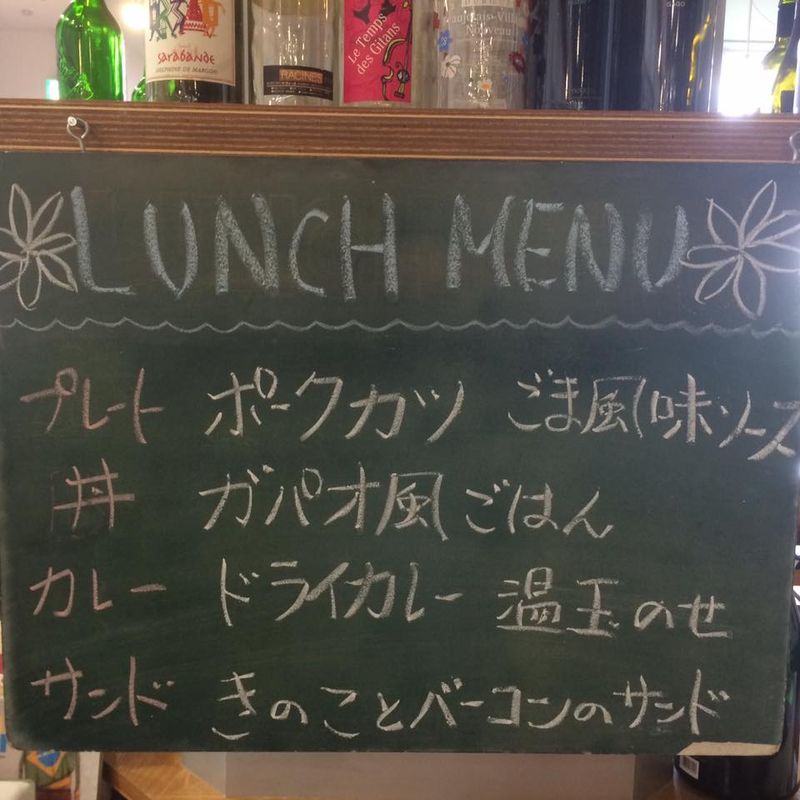 Sarabande
JOSEPHINE DE MARGON
RACINES
Le Temps
des Gitans
Beaujolais-Villages
Nouveau
LUNCH MENU
プレート ポークカツ ごま風味ソース
丼 ガパオ風ごはん
カレー ドライカレー 温玉のせ
サンド きのことバーコンのサンド